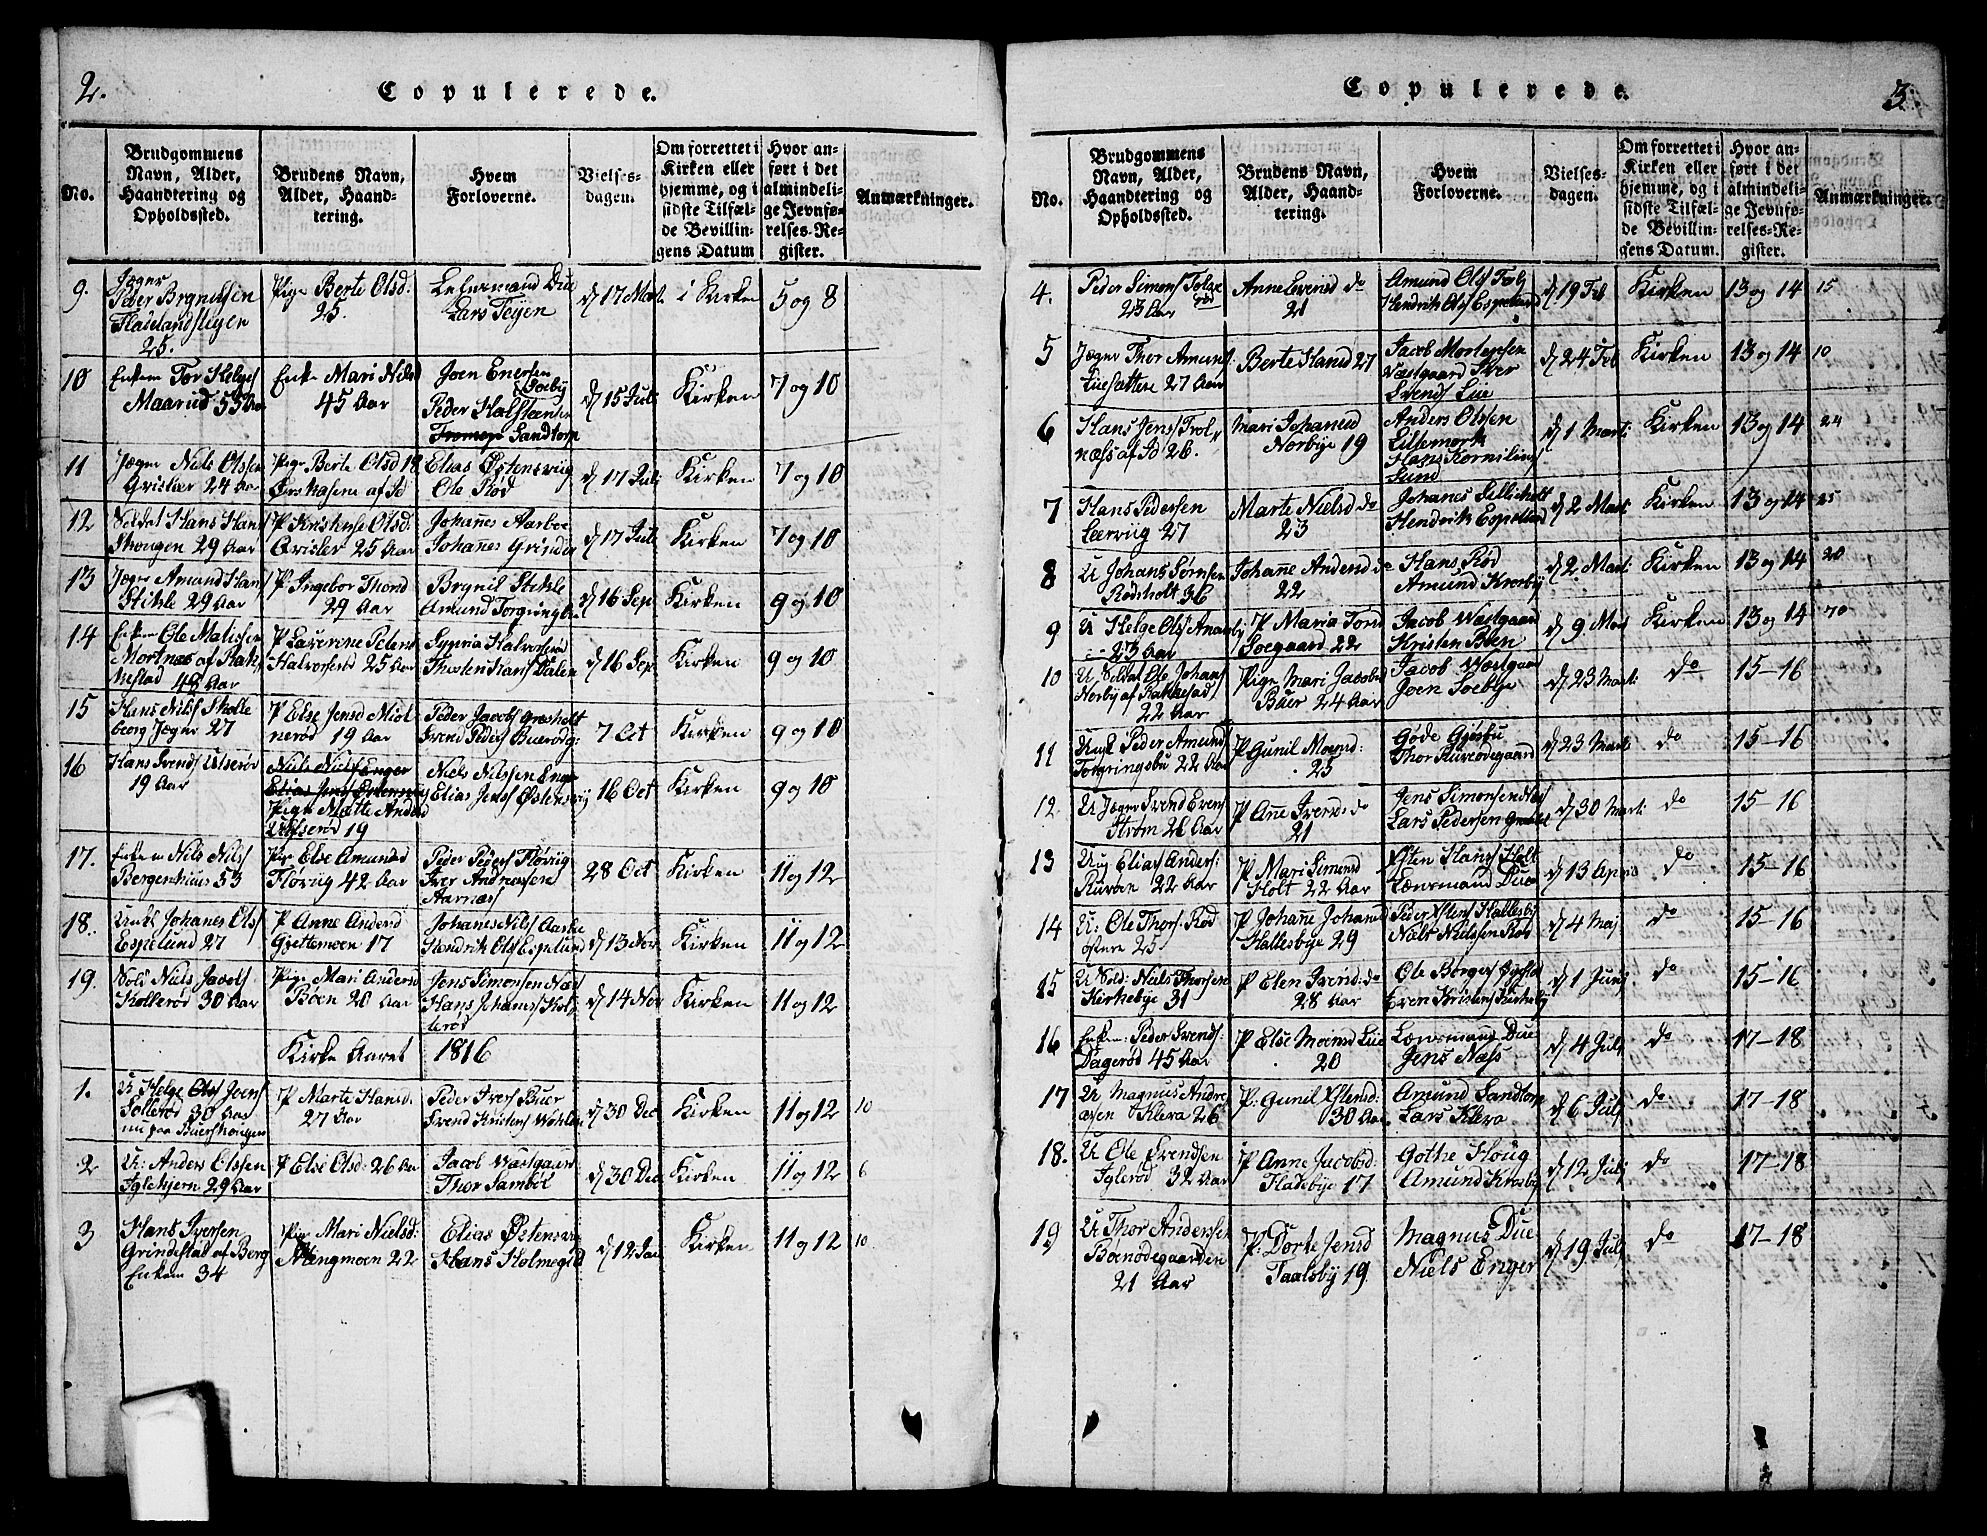 2.
Copulerede.
No.
Brudgommens Navn, Alder, Haandtering og Opholdssted.
Brudens Navn, Alder, Haandtering.
Hvem Forloverne.
Vielsesdagen.
Om forrettet i Kirken eller hjemme, og i sidste Tilfælde Bevillingens Datum
Hvor anført i det almindelige Jevnførelses-Register.
Anmærkninger.
9. Jæger
Pige Berte Olsd: 25.
Lars Teigen
d 17 Mart i Kirken 5 og 8
25.
10 Enkem Tor Helges Maarud 53 Aar
Enke Mari Niels 45 Aar
Joen Enersen Soeby
Peder Halstensen Sandtorp
d 15 Juli Kirken 7 og 10
11 Jæger Niels Olssen 24 Aar
Pige Berte Olsd 18 af Id
Elias Østensviig
Ole Rød
d. 17 Juli Kirken 7 og 10
12 Soldat Hans Hans Skougen 29 Aar
P Olsd: 25 Aar
Johanes Aarboe
Johanes
d 17 Juli Kirken 7 og 10
13 Jæger Amund Hans Stikle 29 Aar
P Ingebor Thord 29 Aar
Brynil Stikle
Amund
d 16 Sep Kirken 9 og 10
14 Enkem Ole Matissen Mortnæs af Rakkestad 48 Aar
P Peters Halvorsrød 25 Aar
Halvorsrød
Hans Dalen
d 16 Sep. Kirken 9 og 10
15 Hans Nils Skolleborg Jæger 27
P Else Jensd 19 Aar
Peder Jacobs
Svend Peders
7 Oct Kirken 9 og 10
16 Hans Svends Ulserød 19 Aar
Pige Mætte Anders Ulserød 19
Niels Nilssen Enger
Elias Jens Østensviig
16 Oct Kirken 9 og 10
17. Enkem Nils Nils Bergenhuus 53
Pige Else Amund 42 Aar
Peder Peders
Iver Andreassen Aarnæs
28 Oct Kirken 11 og 12
18. Johanes Ols Espelund 27
P Anne Anderd Gjettemoen 17
Johanes Nils Aaske
Hendrik Ols Espelund
d 13 Nov Kirken 11 og 12
19. Niels Jacobs Kollerød 30 Aar
Pige Mari Anders Bøen 20 Aar
Jens Simonsen Næs
Hans Johanes Kollerød
d 14 Nov Kirken 11 og 12
Kirke Aaret 1816
1. U Helge Joens Tollerød 30 Aar
nu paa Buerskougen
P Marte Hansd. 27 Aar
Peder Ivers Buer
Svend Kristens
d 30 Dec Kirken 11 og 12 10
2 U: Anders Olssen Iglehjern 29 Aar
P Else Olsd: 26 Aar
Jacob Wæstgaard
Thor
d 30 Dec Kirken 11 og 12 6
3 Hans Iversen Grindestad af Berg Enkem 34
Pige Mari Nielsd: 22
Elias Østensviig
Hans Holmegild
d 12 Jan Kirken 11 og 12 10
Copulerede.
3.
No.
Brudgommens Navn, Alder, Haandtering og Opholdssted.
Brudens Navn, Alder, Haandtering.
Hvem Forloverne.
Vielsesdagen.
Om forrettet i Kirken eller hjemme, og i sidste Tilfælde Bevillingens Datum.
Hvor anført i det almindelige Jevnførelses-Register.
Anmærkninger.
4. Peder Simons 23 Aar
Anne Evensd do 21
Amund Ols
Hendrik Ols Espelund
d 19 Feb Kirken 13 og 14 15
5 Jæger Thor Amund 27 Aar
Berte 27
Jacob Mortensen Væstgaard Iver Svends Lue
d 24 Feb Kirken 13 og 14 10
6 Hans Jens af Id 26.
Mari Johanesd Norbye 19
Anders Olssen Lillemork
Hans Kornilius Lund
d 1 Marti Kirken 13 og 14 24
7 Hans Pedersen Leerviig 27
Marte Nielsd do 23
Johanes
Hendrik Espelund
d 2 Mart Kirken 13 og 14 25
8 U Johans Rødsholt 36
Johane Andersd do 22
Hans Rød
Amund Krosby
d 2 Mart Kirken 13 og 14 20
9 U Helge Ols 23 Aar
P Maria Tord Soegaard 22
Jacob Wæstgaard
Kristen Been
d 9 Mart Kirken 13 og 14 70
10 U Soldat Ole Johans Norby af Rakkestad 22 Aar
Pige Mari Jacobsd Buer 24 Aar
Jacob Væstgaar
Joen Soebye
d 23 Mart: do 15-16
11 Peder Amund 22 Aar
P Gunil Moensd: 25
Gøde
Thor
d 23 Mart do 15-16
12. U Jæger Svend Evens Strøm 26 Aar
P Ane Iversd: do 21
Jens Simonsen Næs
Lars Pedersen
d 30 Mart: do 15-16
13 Elias Anders: 22 Aar
P Mari Simensd Holt 22 Aar
Hans Holt
Lænsmand Due
d 13 April do 15-16
14 U: Ole Thors. Rød østere 25
P Johane Johanesd Hallesbye 29
Peder Hallesby
Niels Nielssen Rød
d 4 Maj do 15-16
15 U Sold: Niels Thorsen Kirkebye 31
P Elen Iversd: do 28 Aar
Ole Borgers
Even Kristens Kirkeby
d 1 Junj do 15-16
16 Enkem: Peder Svends: Dagerød 45 Aar
P Else Moensd Lue 20
Lænsmand Due
Jens Næss
d 4 Julj do 17-18
17 U Magnus Andreasen Kleva 26
P: Gunil 30 Aar
Amund Sandtorp
Lars Kleva
d 6 Julj do 17-18
18. U Ole Svendsen Iglerød 32 Aar
P Anne Jacobsd: Fladebye 17
Gothe Houg
Amund Krosby
d 12 Julj do 17-18
19 U Thor Anderssen Bøenødegaarden 21 Aar
P: Dorte Jensd Taalsby 19
Magnus Due
Niels Enger
d 19 Julj do 17-18